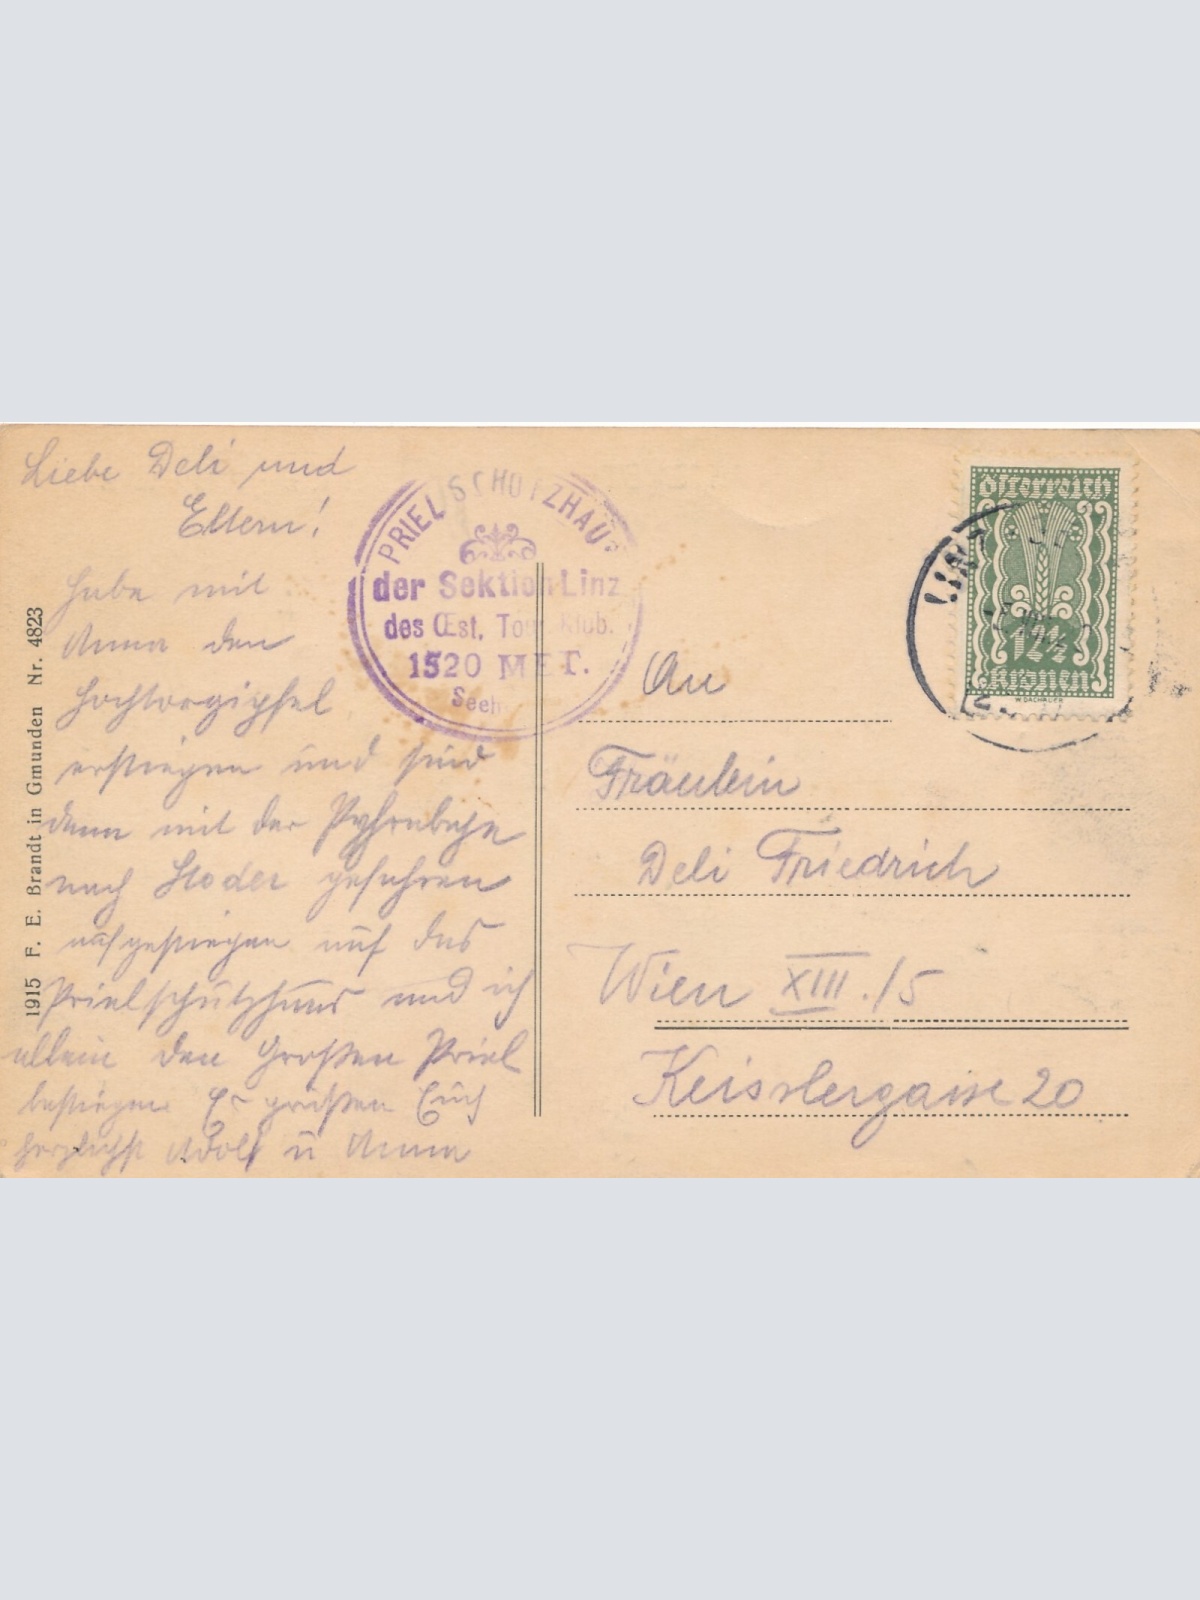 Liebe Deli und
Eltern!
Habe mit
Anna den
Hochtorgipfel
erstiegen und sind
dann mit der Pyhrnbahn
nach Stoder gefahren
aufgestiegen auf das
Prielschutzhaus und ich
allein den Großen Priel
bestiegen. Es grüßen Euch
herzlichst Adolf u Anna
1915 F. E. Brandt in Gmunden Nr. 4823
PRIEL SCHUTZHAUS
der Sektion Linz
des Œst. Tour. Klub.
1520 MET.
Seeh.
Österreich
12½
Kronen
W. DACHAUER
LINZ
An
Fräulein
Deli Friedrich
Wien XIII./5
Keisslergasse 20